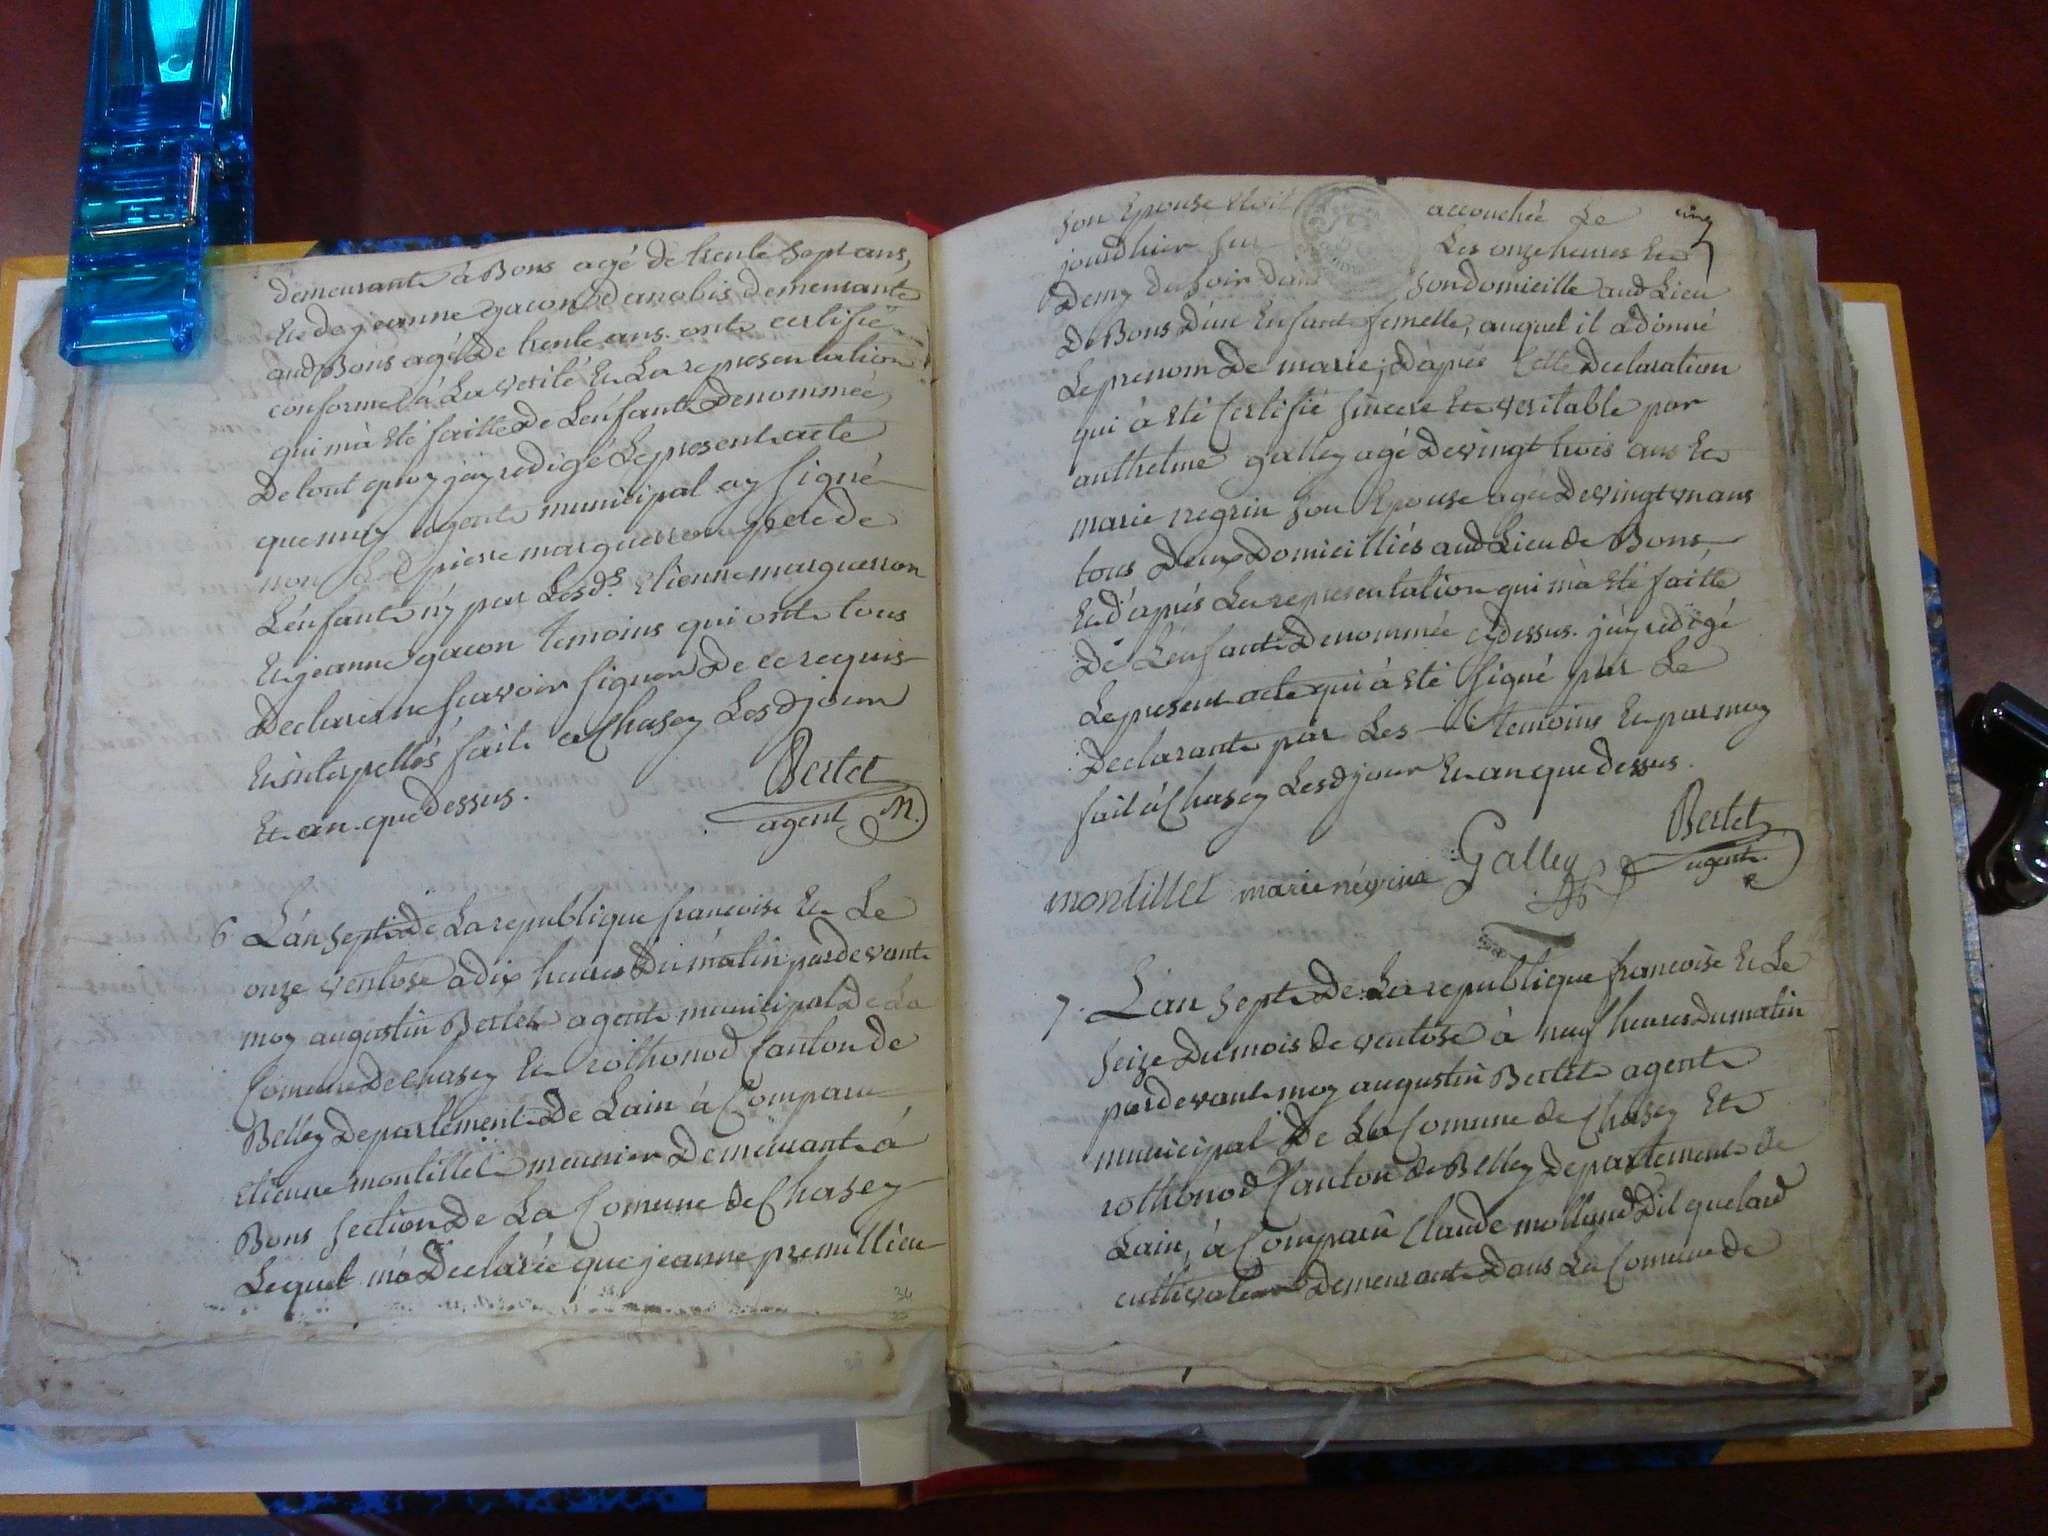 demeurant à Bons agé de trente sept ans,
Et de jeanne gacon danobis demeurante
aud Bons agée De trente ans. ont certifié
conforme à La verité Et La representation
qui mà Eté faitte De Lénfant Denommée
De tout quoy jay redigé Le present acte
que moy agent municipal ay signé
non led pierre marguerron pere de
Lénfant n'y par Lesds. Etienne marguerron
Et jeanne gacon temoins qui ont tous
Declaré ne scavoir signer De ce requis
Et interpellés fait à Chasey Lesd jour
Et an que Dessus.
Bertet
agent M.
6 Lán sept De La republique francoise Et Le
onze ventose a dix heures Du matin pardevant
moy augustin Bertet agent municipal De La
Comune De Chasey Et rothonod Canton de
Belley Departement De Lain à Comparu
Etienne montillet meunier Demeurant à
Bons section De La Comune de Chasey
Lequel mà Declarée que jeanne premillieu
34
son Epouse Etoit accouchée Le cinq
jourdhier sur Les onze heures Et
Demy du soir dans son domicille aud Lieu
De Bons D'un Enfant femelle, auquel il à donné
Le prenom De marie; D'àprés Cette Declaration
qui à Eté Certifié sincere Et veritable par
anthelme galley agé De vingt trois ans Et
marie negrin son Epouse agée De vingt un ans
tous Deux Domicilliés aud Lieu de Bons,
Et d'aprés La representation qui mà Eté faitte
De Lénfant Denommée cydessus. j'ay redigé
Le present acte qui à Eté signé par Le
Declarant par Les temoins Et par moy
fait à Chasey Lesd jour Et an que dessus.
Bertet
agent
montillet marie négrin Galley
7. Lan sept De La republique francoise Et Le
seize Du mois de ventose à neuf heures Du matin
pardevant moy augustin Bertet agent
municipal De La Comune de Chasey Et
rothonod Canton de Belley Departement de
Lain, à Comparu Claude mollund Dit quelard
cultivateur Demeurant Dans La Comune de